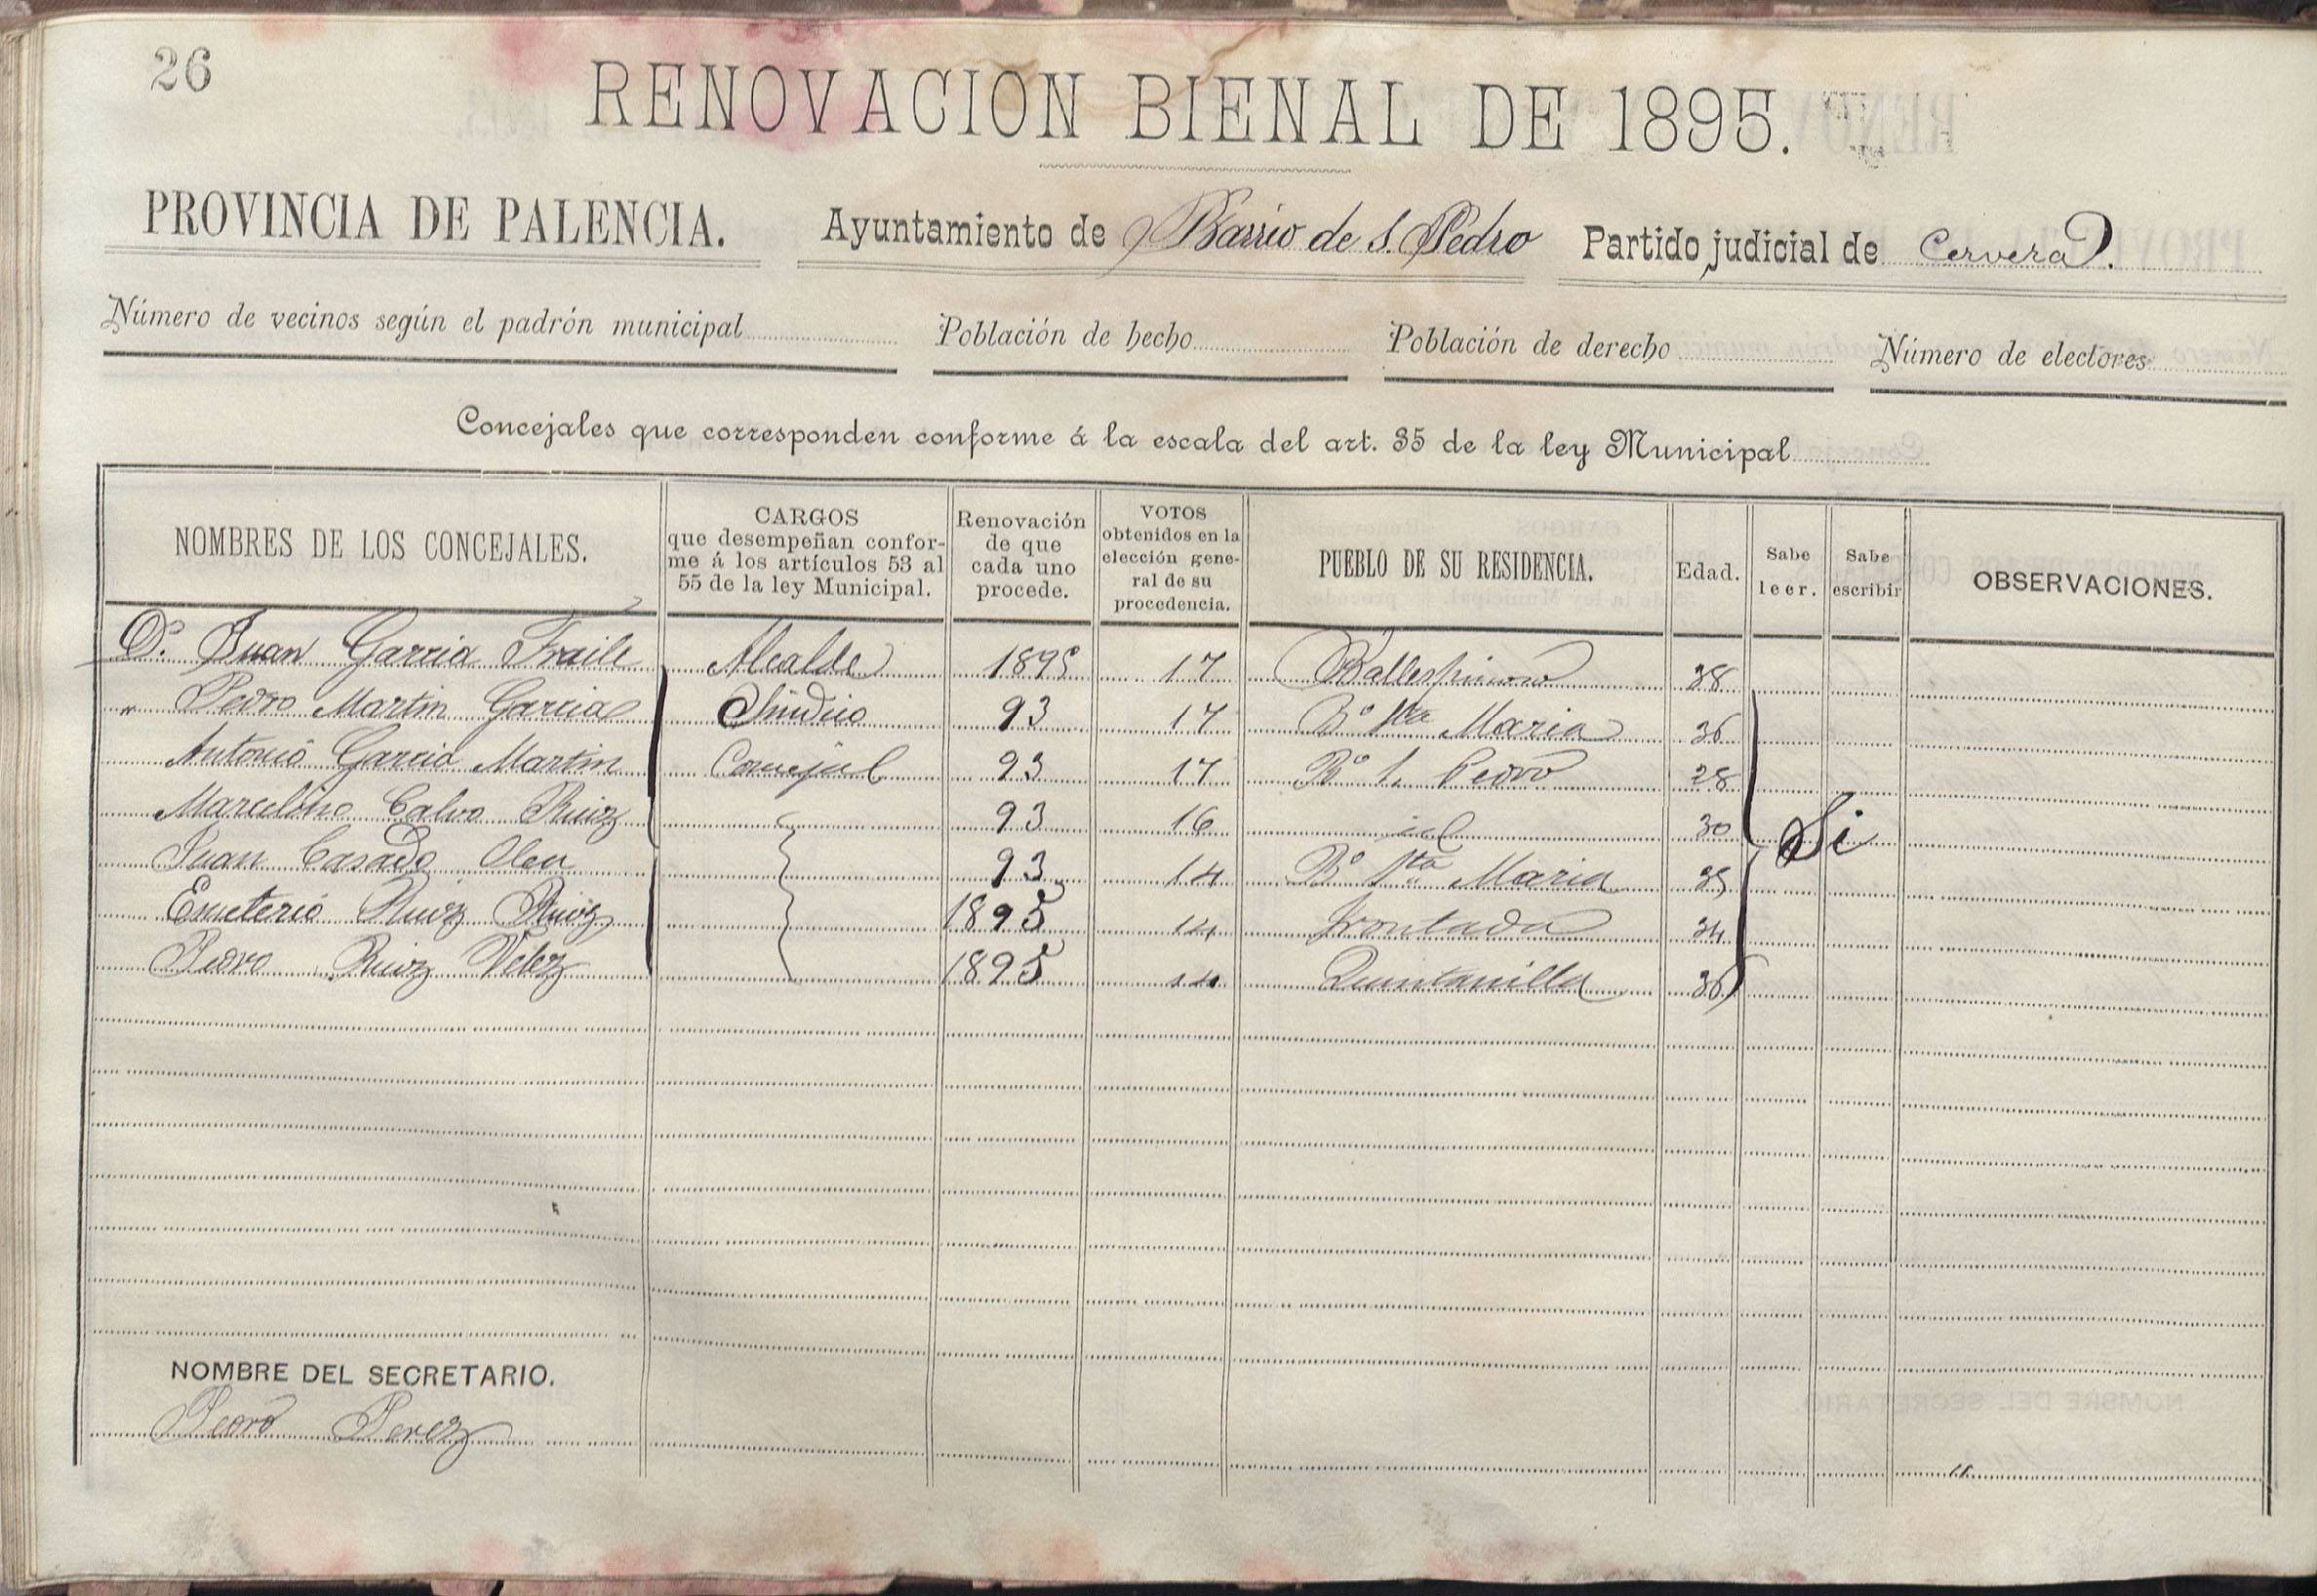 26
RENOVACION BIENAL DE 1895.
PROVINCIA DE PALENCIA. Ayuntamiento de Barrio de S. Pedro Partido judicial de Cervera.
Número de vecinos según el padrón municipal Población de hecho Población de derecho Número de electores
Concejales que corresponden conforme á la escala del art. 35 de la ley Municipal
NOMBRES DE LOS CONCEJALES.
CARGOS
que desempeñan confor-
me á los artículos 53 al
55 de la ley Municipal.
Renovación
de que
cada uno
procede.
VOTOS
obtenidos en la
elección gene-
ral de su
procedencia.
PUEBLO DE SU RESIDENCIA.
Edad.
Sabe
leer.
Sabe
escribir
OBSERVACIONES.
D. Juan Garcia Fraile Alcalde 1895 17 38
" Pedro Martin Garcia Síndico 93 17 Bº Sta Maria 36
Antonio Garcia Martin Concejal 93 17 Bº S. Pedro 28
Marcelino Calvo Ruiz 93 16 id 30 Si
Juan Casado 93 14 Bº Sta Maria 35
Emeterio Ruiz Ruiz 1895 14 Frontada 34
Pedro Ruiz Velez 1895 14 Quintanilla 36
NOMBRE DEL SECRETARIO.
Pedro Perez